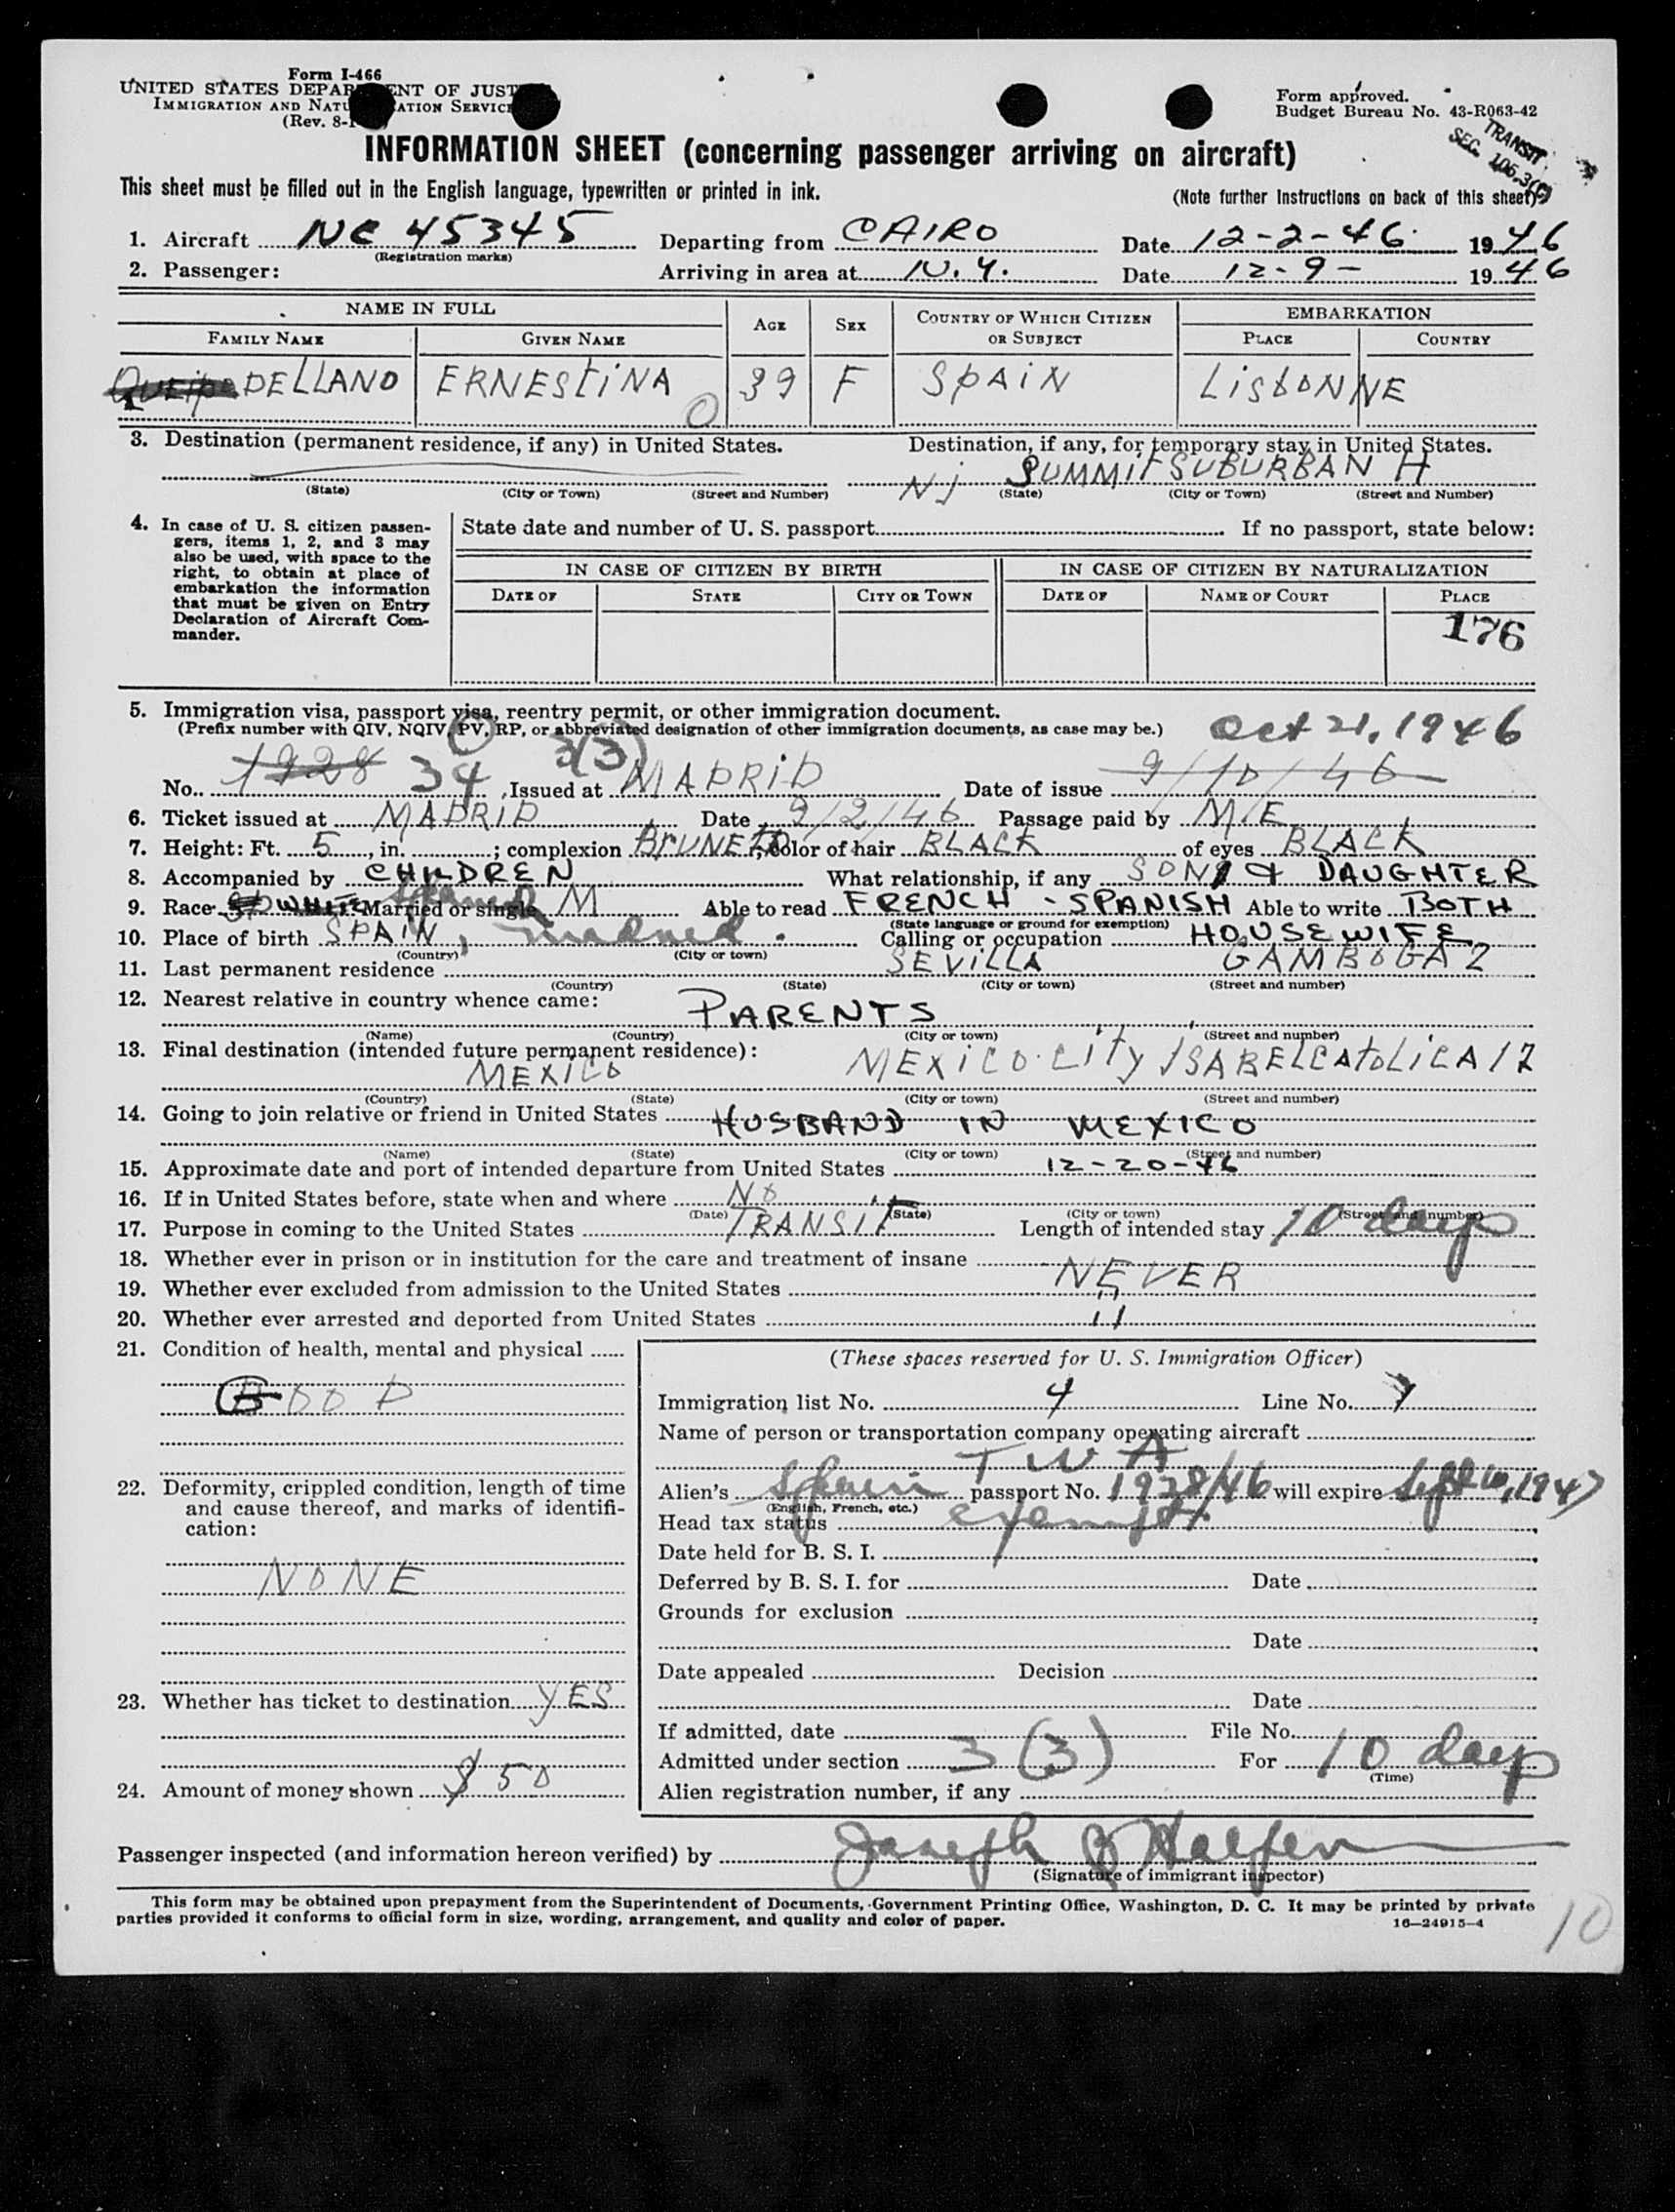 Form I-466
UNITED STATES DEPAR ENT OF JUST
IMMIGRATION AND NATU ATION SERVICE
(Rev. 8-1
Form approved.
Budget Bureau No. 43-R063-42
TRANSIT
SEC. 105.3(C)
INFORMATION SHEET (concerning passenger arriving on aircraft)
This sheet must be filled out in the English language, typewritten or printed in ink. (Note further instructions on back of this sheet)
1. Aircraft NC 45345 Departing from CAIRO Date 12-2-46. 1946
(Registration marks)
2. Passenger: Arriving in area at N.Y. Date 12-9- 1946
NAME IN FULL AGE SEX COUNTRY OF WHICH CITIZEN OR SUBJECT EMBARKATION
FAMILY NAME GIVEN NAME PLACE COUNTRY
QUEipo DELLANO ERNESTINA 39 F SPAIN LISBONNE
3. Destination (permanent residence, if any) in United States. Destination, if any, for temporary stay in United States.
NJ SUMMIT SUBURBAN H
(State) (City or Town) (Street and Number) (State) (City or Town) (Street and Number)
4. In case of U. S. citizen passen-
gers, items 1, 2, and 3 may
also be used, with space to the
right, to obtain at place of
embarkation the information
that must be given on Entry
Declaration of Aircraft Com-
mander.
State date and number of U. S. passport If no passport, state below:
IN CASE OF CITIZEN BY BIRTH IN CASE OF CITIZEN BY NATURALIZATION
DATE OF STATE CITY OR TOWN DATE OF NAME OF COURT PLACE
176
5. Immigration visa, passport visa, reentry permit, or other immigration document.
(Prefix number with QIV, NQIV, PV, RP, or abbreviated designation of other immigration documents, as case may be.) Oct 21, 1946
3(3)
No. 1928 34 Issued at MADRID Date of issue 9/10/46
6. Ticket issued at MADRID Date 9/2/46 Passage paid by M.E
7. Height: Ft. 5, in. ; complexion BRUNETD; color of hair BLACK of eyes BLACK
8. Accompanied by CHILDREN What relationship, if any SON & DAUGHTER
9. Race WHITE Spanish Married or single M Able to read FRENCH - SPANISH Able to write BOTH
(State language or ground for exemption)
10. Place of birth SPAIN, Madrid. Calling or occupation HOUSEWIFE
(Country) (City or town)
11. Last permanent residence SEVILLA GAMBOGAZ
(Country) (State) (City or town) (Street and number)
12. Nearest relative in country whence came: PARENTS
(Name) (Country) (City or town) (Street and number)
13. Final destination (intended future permanent residence):
MEXICO MEXICO CITY ISABELCATOLICA 12
(Country) (State) (City or town) (Street and number)
14. Going to join relative or friend in United States HUSBAND IN MEXICO
(Name) (State) (City or town) (Street and number)
15. Approximate date and port of intended departure from United States 12-20-46
16. If in United States before, state when and where NO
(Date) (State) (City or town) (Street and number)
17. Purpose in coming to the United States TRANSIT Length of intended stay 10 days
18. Whether ever in prison or in institution for the care and treatment of insane NEVER
19. Whether ever excluded from admission to the United States "
20. Whether ever arrested and deported from United States "
21. Condition of health, mental and physical
GOOD
22. Deformity, crippled condition, length of time
and cause thereof, and marks of identifi-
cation:
NONE
23. Whether has ticket to destination YES
24. Amount of money shown $ 50
(These spaces reserved for U. S. Immigration Officer)
Immigration list No. 4 Line No. 7
Name of person or transportation company operating aircraft
T W A
Alien's Spain passport No. 1928/46 will expire Sept 10, 1947
(English, French, etc.)
Head tax status exempt
Date held for B. S. I.
Deferred by B. S. I. for Date
Grounds for exclusion
Date
Date appealed Decision
Date
If admitted, date File No.
Admitted under section 3 (3) For 10 days
(Time)
Alien registration number, if any
Passenger inspected (and information hereon verified) by Joseph B Halfen
(Signature of immigrant inspector)
This form may be obtained upon prepayment from the Superintendent of Documents, Government Printing Office, Washington, D. C. It may be printed by private
parties provided it conforms to official form in size, wording, arrangement, and quality and color of paper. 16—24915-4
10